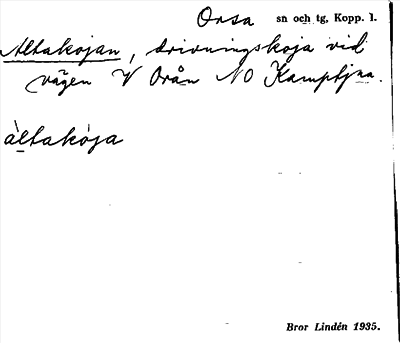 Orsa sn och tg, Kopp. l.
Altakojan, drivningskoja vid
vägen V Orån NO Kamptjna.
àltakòja
Bror Lindén 1935.